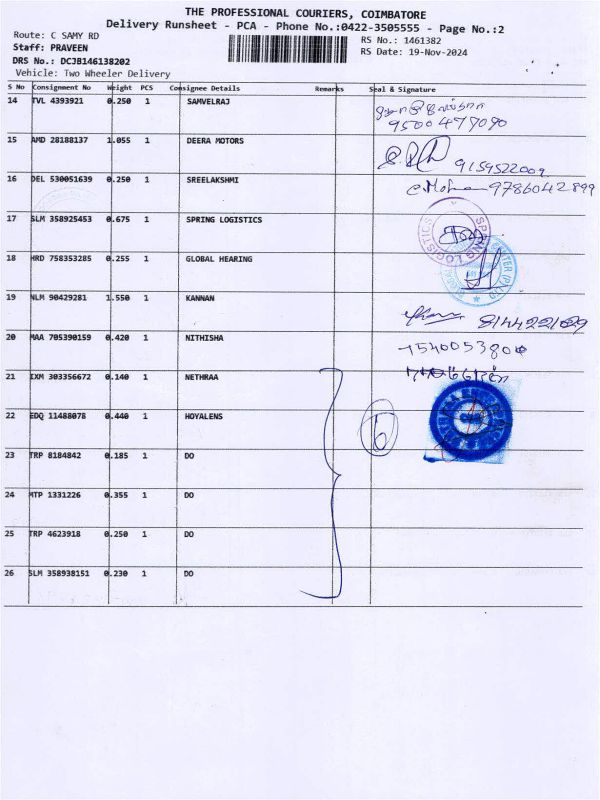 THE PROFESSIONAL COURIERS, COIMBATORE
Delivery Runsheet - PCA - Phone No.:0422-3505555 - Page No.:2
Route: C SAMY RD
RS No.: 1461382
Staff: PRAVEEN
RS Date: 19-Nov-2024
DRS No.: DCJB146138202
Vehicle: Two Wheeler Delivery
S No Consignment No Weight PCS Consignee Details Remarks Seal & Signature
14 TVL 4393921 0.250 1 SAMVELRAJ
9500477090
15 AMD 28188137 1.055 1 DEERA MOTORS
9159522009
16 DEL 530051639 0.250 1 SREELAKSHMI
C.Mohan 9786042899
17 SLM 358925453 0.675 1 SPRING LOGISTICS
SPRING LOGISTICS
18 HRD 758353285 0.255 1 GLOBAL HEARING
19 NLM 90429281 1.550 1 KANNAN
8144221029
20 MAA 705390159 0.420 1 NITHISHA
21 IXM 303356672 0.140 1 NETHRAA
22 EDQ 11488078 0.440 1 HOYALENS
6
23 TRP 8184842 0.185 1 DO
24 MTP 1331226 0.355 1 DO
25 TRP 4623918 0.250 1 DO
26 SLM 358938151 0.230 1 DO